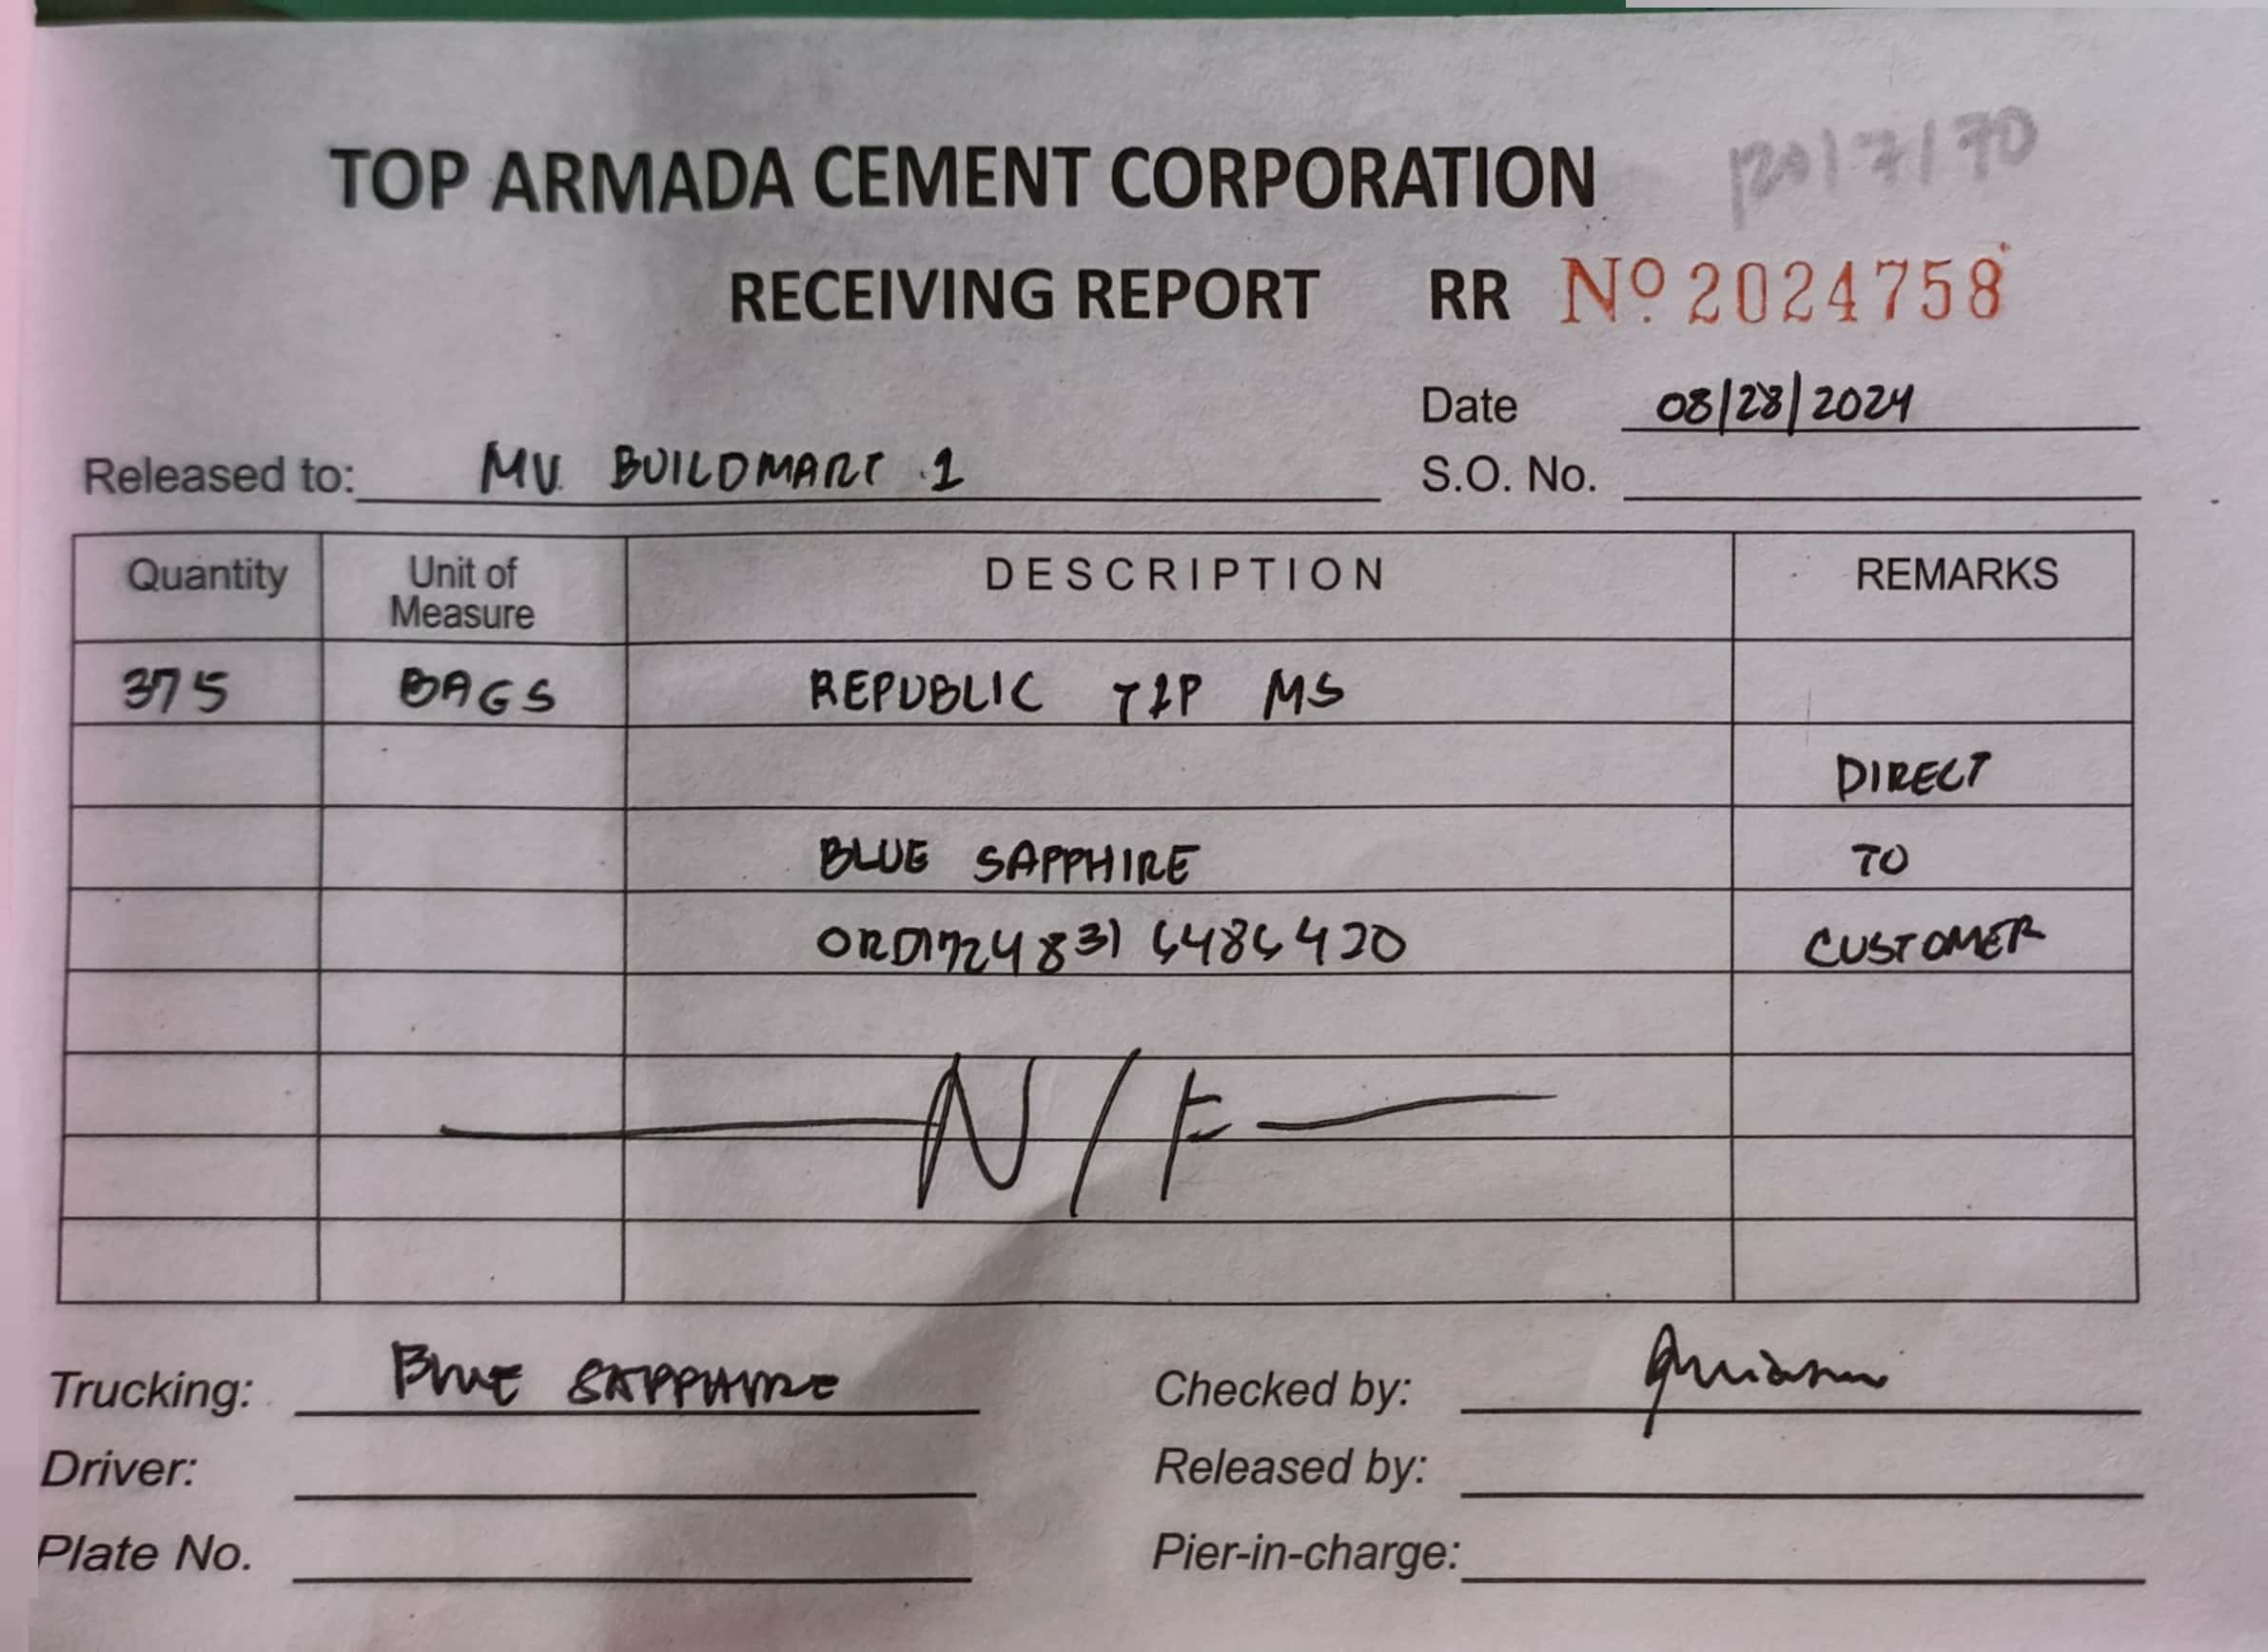 TOP ARMADA CEMENT CORPORATION
RECEIVING REPORT RR Nº 2024758
Date 08/28/2024
Released to: MV BUILDMART 1
S.O. No.
Quantity Unit of Measure DESCRIPTION REMARKS
375 BAGS REPUBLIC T1P MS
DIRECT
BLUE SAPPHIRE TO
CUSTOMER
N/F
Trucking: BLUE SAPPHIRE Checked by:
Driver: Released by:
Plate No. Pier-in-charge: